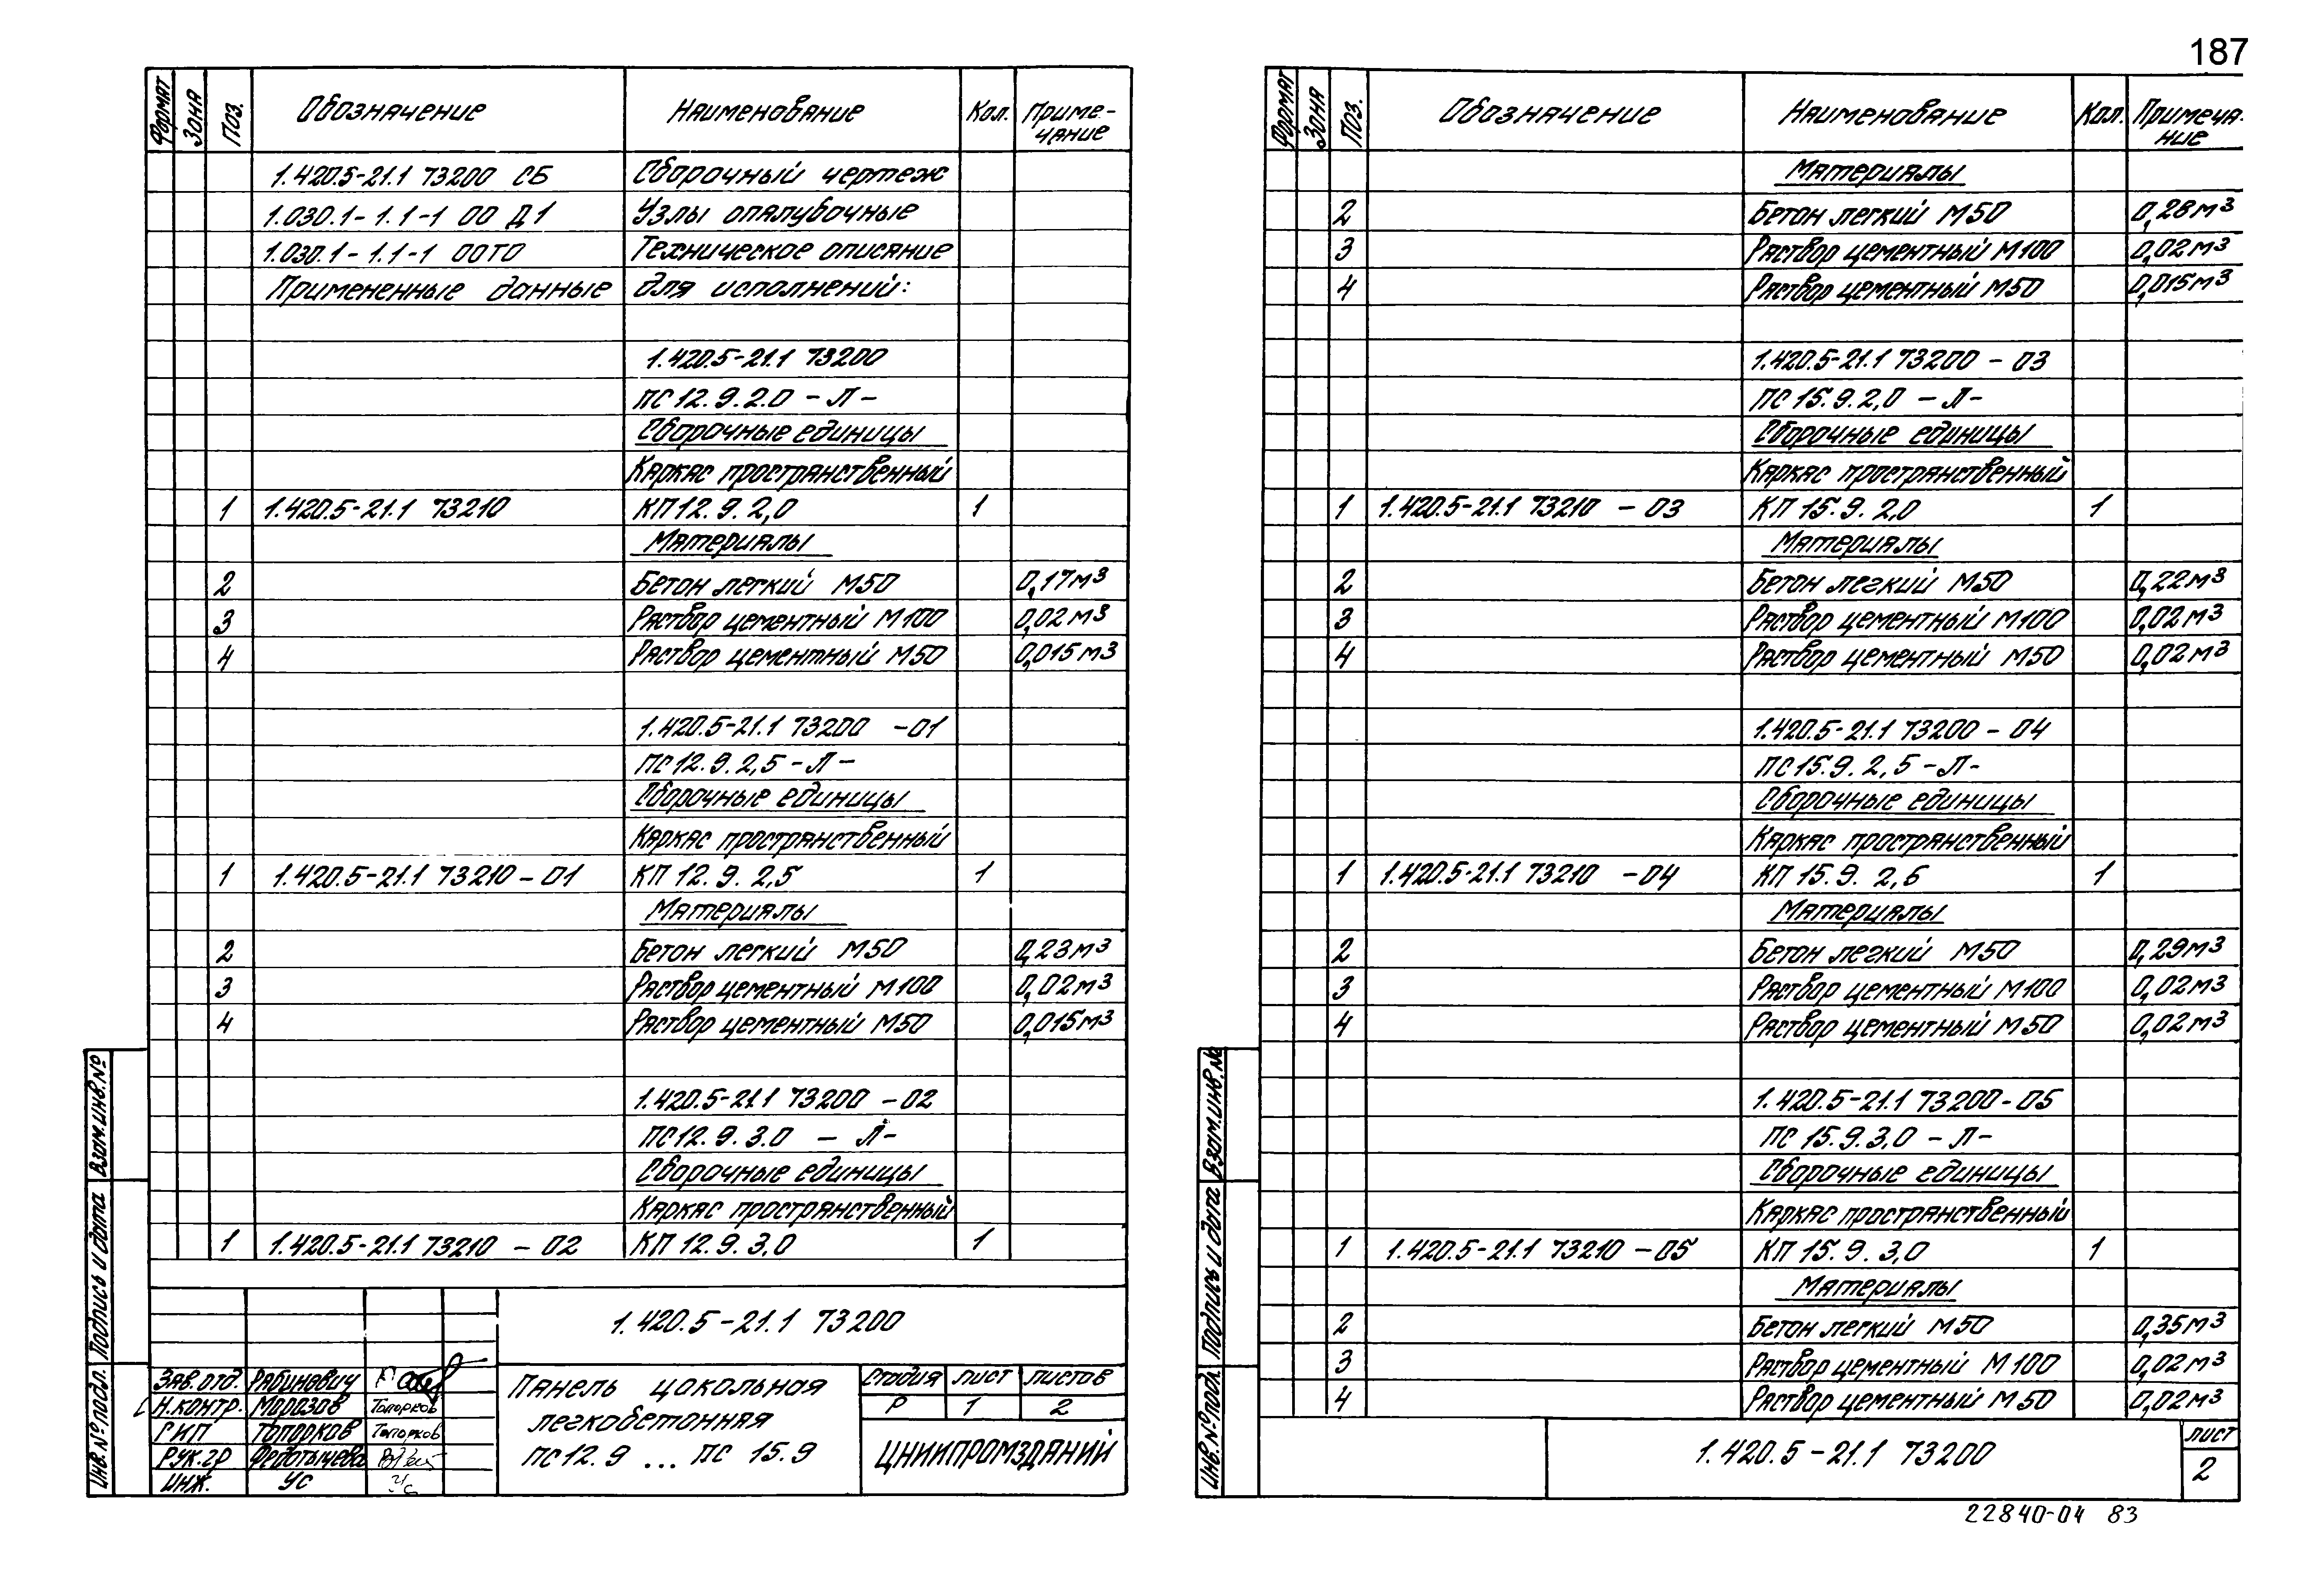 187
ФОРМАТ ЗОНА ПОЗ. Обозначение Наименование Кол. Приме-
чание
1.420.5-21.1 73200 СБ Сборочный чертеж
1.030.1-1.1-1 00 Д1 Узлы опалубочные
1.030.1-1.1-1 00ТО Техническое описание
Примененные данные для исполнений:
1.420.5-21.1 73200
ПС 12.9.2.0 - Л -
Сборочные единицы
Каркас пространственный
1 1.420.5-21.1 73210 КП 12.9.2,0 1
Материалы
2 Бетон легкий М50 0,17м3
3 Раствор цементный М100 0,02м3
4 Раствор цементный М50 0,015м3
1.420.5-21.1 73200 -01
ПС 12.9.2,5 - Л -
Сборочные единицы
Каркас пространственный
1 1.420.5-21.1 73210 - 01 КП 12.9.2,5 1
Материалы
2 Бетон легкий М50 0,23м3
3 Раствор цементный М100 0,02м3
4 Раствор цементный М50 0,015м3
1.420.5-21.1 73200 - 02
ПС 12.9.3.0 - Л -
Сборочные единицы
Каркас пространственный
1 1.420.5-21.1 73210 - 02 КП 12.9.3,0 1
Взам.инв.№
Подпись и дата
Инв.№подл.
1.420.5-21.1 73200
Зав.отд. Рабинович
Н.контр. Морозов Топорков
ГИП Топорков Топорков
Рук.гр Федотычева
Инж. Ус Ус
Панель цокольная
легкобетонная
ПС 12.9 ... ПС 15.9
Стадия лист листов
Р 1 2
ЦНИИПРОМЗДАНИЙ
ФОРМАТ ЗОНА ПОЗ. Обозначение Наименование Кол. Примеча-
ние
Материалы
2 Бетон легкий М50 0,28м3
3 Раствор цементный М100 0,02м3
4 Раствор цементный М50 0,015м3
1.420.5-21.1 73200 - 03
ПС 15.9.2,0 - Л -
Сборочные единицы
Каркас пространственный
1 1.420.5-21.1 73210 - 03 КП 15.9.2,0 1
Материалы
2 Бетон легкий М50 0,22м3
3 Раствор цементный М100 0,02м3
4 Раствор цементный М50 0,02м3
1.420.5-21.1 73200 - 04
ПС 15.9.2,5 - Л -
Сборочные единицы
Каркас пространственный
1 1.420.5-21.1 73210 - 04 КП 15.9.2,6 1
Материалы
2 Бетон легкий М50 0,29м3
3 Раствор цементный М100 0,02м3
4 Раствор цементный М50 0,02м3
1.420.5-21.1 73200 - 05
ПС 15.9.3,0 - Л -
Сборочные единицы
Каркас пространственный
1 1.420.5-21.1 73210 - 05 КП 15.9.3,0 1
Материалы
2 Бетон легкий М50 0,35м3
3 Раствор цементный М100 0,02м3
4 Раствор цементный М50 0,02м3
Взам.инв.№
Подпись и дата
Инв.№подл.
1.420.5-21.1 73200
лист
2
22840-04 83